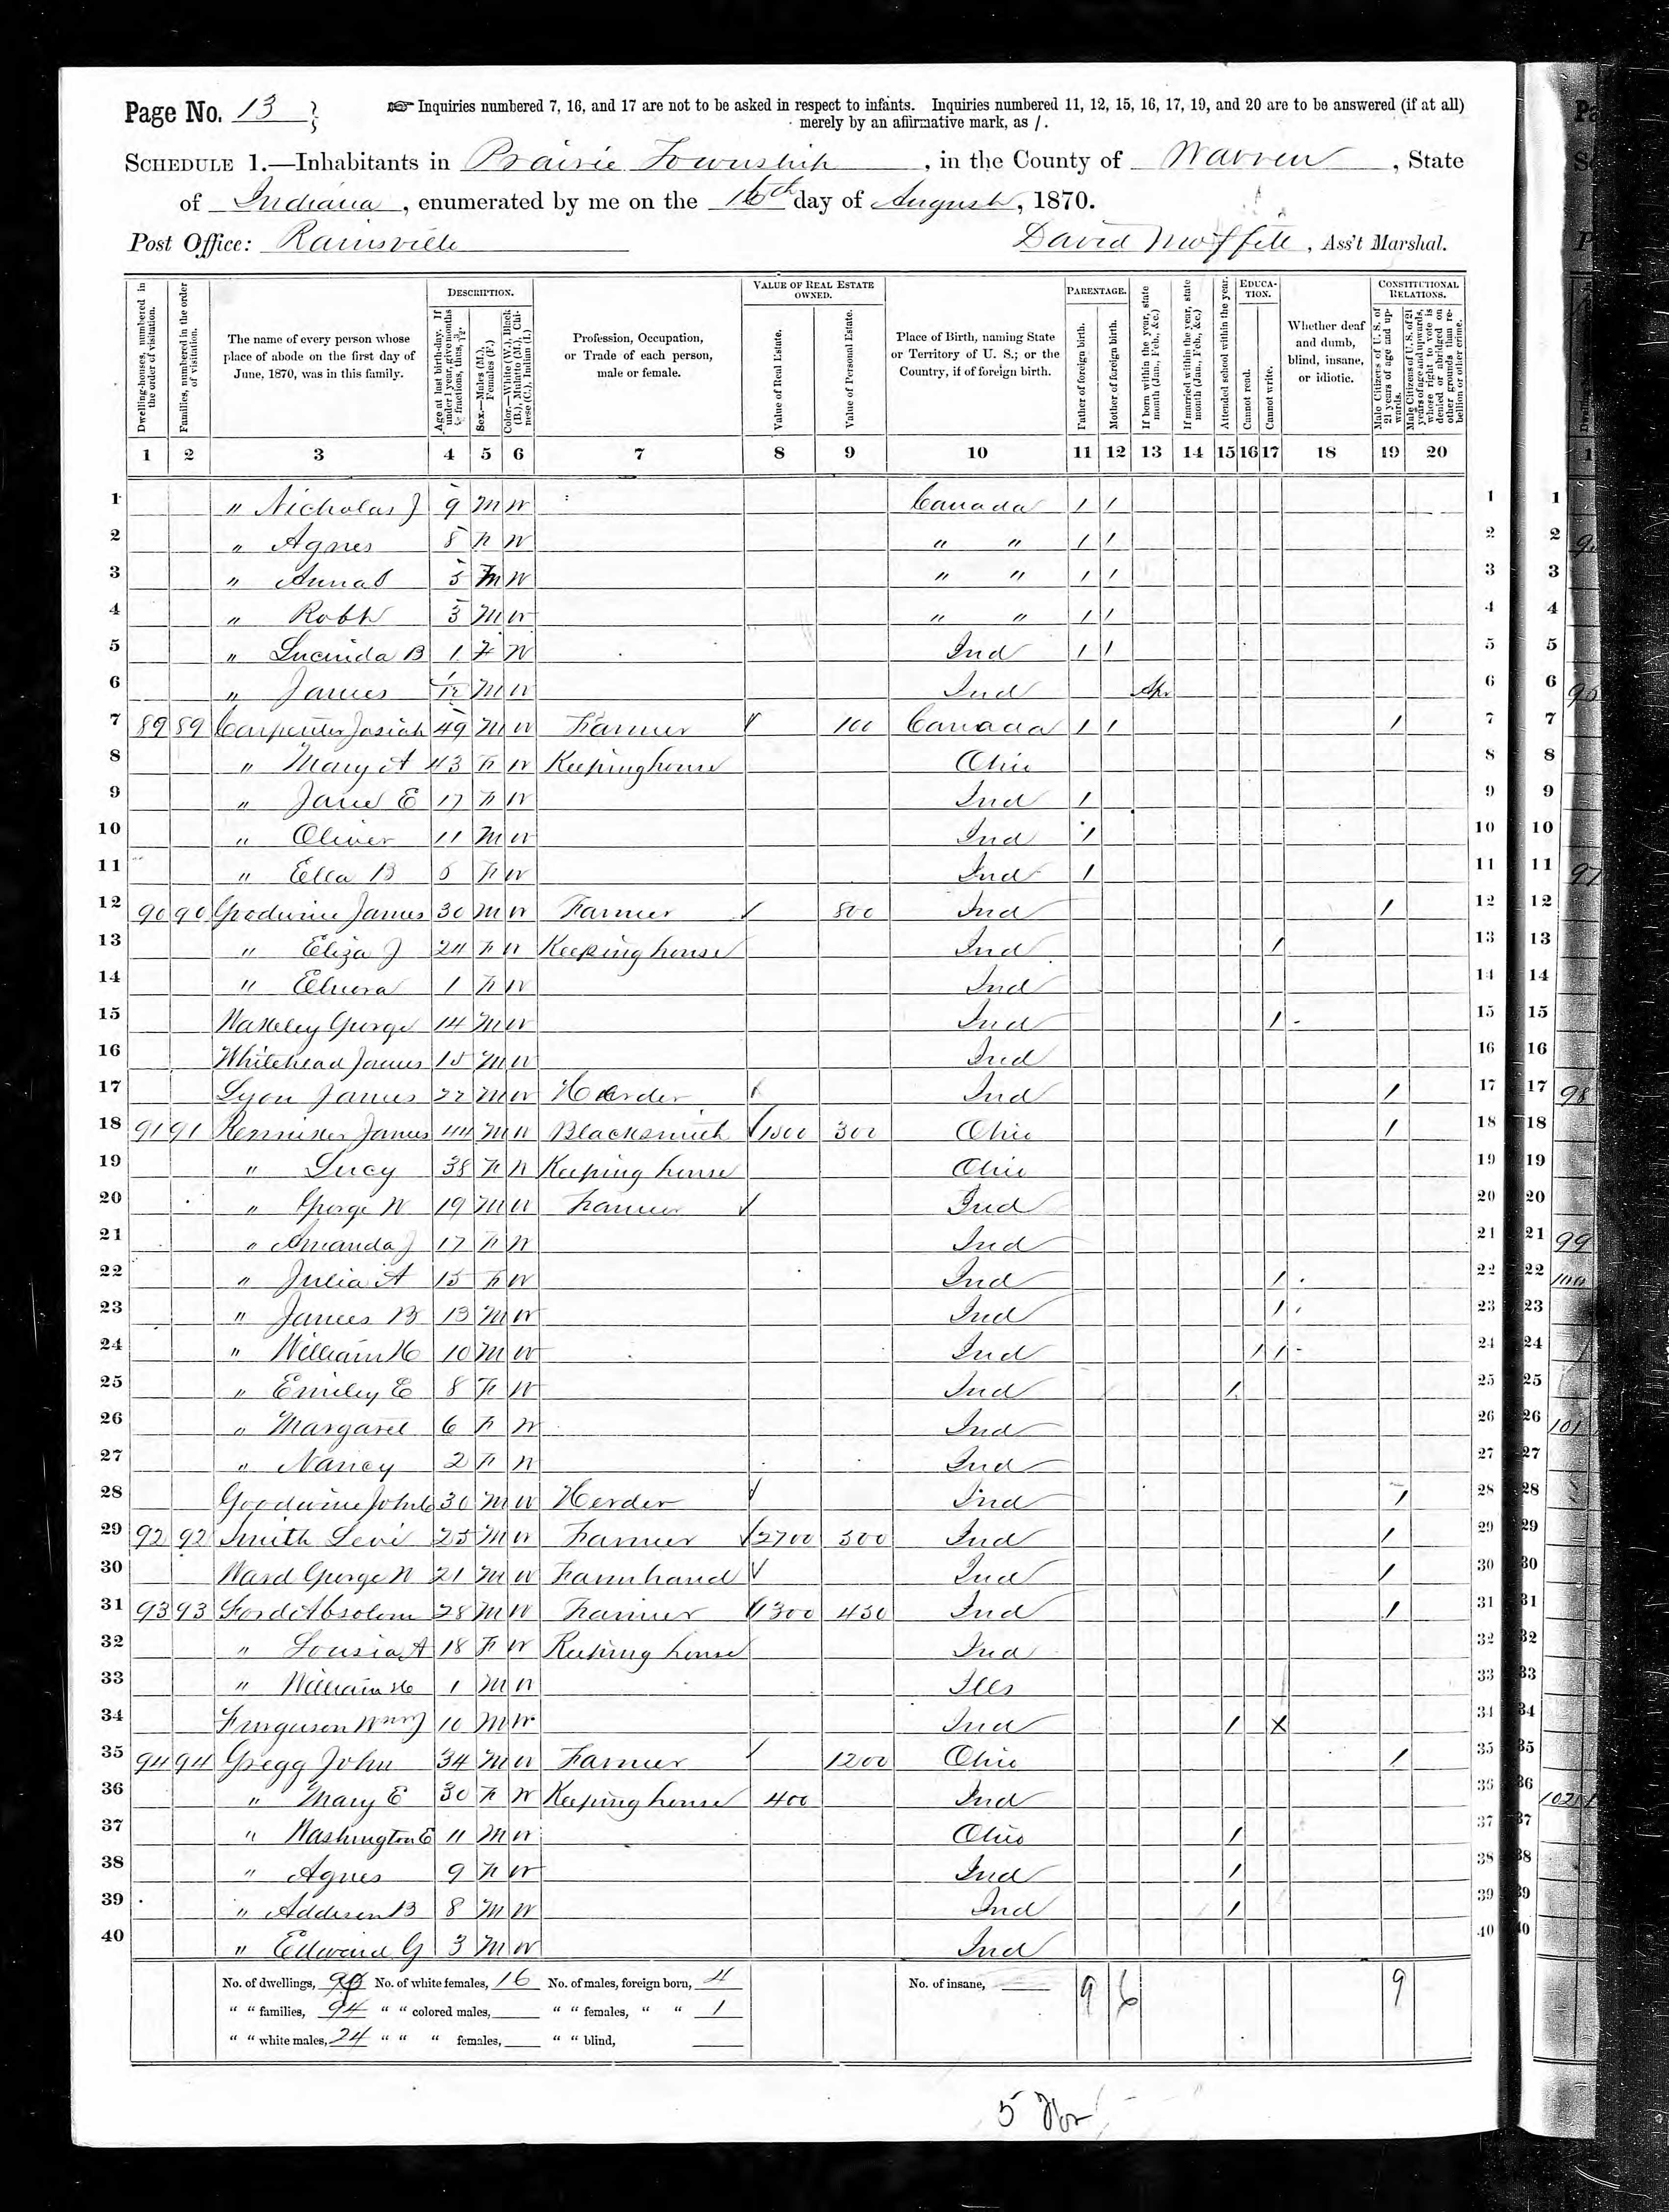 Page No. 13
☞ Inquiries numbered 7, 16, and 17 are not to be asked in respect to infants. Inquiries numbered 11, 12, 15, 16, 17, 19, and 20 are to be answered (if at all)
merely by an affirmative mark, as /.
SCHEDULE 1.—Inhabitants in Prairie Township, in the County of Warren, State
of Indiana, enumerated by me on the 16th day of August, 1870.
Post Office: Rainsville David Moffitt, Ass't Marshal.
Dwelling-houses, numbered in the order of visitation.
Families, numbered in the order of visitation.
The name of every person whose place of abode on the first day of June, 1870, was in this family.
DESCRIPTION.
Age at last birth-day. If under 1 year, give months in fractions, thus, 3/12.
Sex.—Males (M.), Females (F.)
Color.—White (W.), Black (B.), Mulatto (M.), Chinese (C.), Indian (I.)
Profession, Occupation, or Trade of each person, male or female.
VALUE OF REAL ESTATE OWNED.
Value of Real Estate.
Value of Personal Estate.
Place of Birth, naming State or Territory of U. S.; or the Country, if of foreign birth.
PARENTAGE.
Father of foreign birth.
Mother of foreign birth.
If born within the year, state month (Jan., Feb., &c.)
If married within the year, state month (Jan., Feb., &c.)
Attended school within the year.
EDUCATION.
Cannot read.
Cannot write.
Whether deaf and dumb, blind, insane, or idiotic.
CONSTITUTIONAL RELATIONS.
Male Citizens of U. S. of 21 years of age and upwards.
Male Citizens of U. S. of 21 years of age and upwards, whose right to vote is denied or abridged on other grounds than rebellion or other crime.
1 2 3 4 5 6 7 8 9 10 11 12 13 14 15 16 17 18 19 20
1 " Nicholas J 9 M W Canada / / 1
2 " Agnes 8 F W " " / / 2
3 " 5 M W " " / / 3
4 " Robt 3 M W " " / / 4
5 " Lucinda B 1 F W Ind / / 5
6 " James 1/12 M W Ind Apr 6
7 89 89 Carpenter Josiah 49 M W Farmer 100 Canada / / / 7
8 " Mary A 43 F W Keeping house Ohio 8
9 " Jane E 17 F W Ind / 9
10 " Oliver 11 M W Ind / 10
11 " Ella B 5 F W Ind / 11
12 90 90 Goodwine James 30 M W Farmer 800 Ind / 12
13 " Eliza J 24 F W Keeping house Ind / 13
14 " Elnora 1 F W Ind 14
15 George 14 M W Ind / 15
16 Whitehead James 15 M W Ind 16
17 Lyon James 22 M W Herder Ind / 17
18 91 91 James 44 M W Blacksmith 1500 300 Ohio / 18
19 " Lucy 38 F W Keeping house Ohio 19
20 " George W 19 M W Farmer Ind 20
21 " Amanda J 17 F W Ind 21
22 " Julia A 15 F W Ind / 22
23 " James B 13 M W Ind / 23
24 " William H 10 M W Ind / / 24
25 " Emiley E 8 F W Ind / 25
26 " Margaret 6 F W Ind 26
27 " Nancy 2 F W Ind 27
28 Goodwine John 30 M W Herder Ind / 28
29 92 92 Smith Levi 25 M W Farmer 2700 500 Ind / 29
30 Ward George W 21 M W Farm hand Ind / 30
31 93 93 Ford Absolom 28 M W Farmer 1300 450 Ind / 31
32 " Lousia A 18 F W Keeping house Ind 32
33 " William H 1 M W Ills 33
34 Ferguson Wm J 10 M W Ind / X 34
35 94 94 Gregg John 34 M W Farmer 1200 Ohio / 35
36 " Mary E 30 F W Keeping house 400 Ind 36
37 " Washington E 11 M W Ohio / 37
38 " Agnes 9 F W Ind / 38
39 " Addison B 8 M W Ind / 39
40 " Edward G 3 M W Ind 40
No. of dwellings, No. of white females, 16 No. of males, foreign born, 4 No. of insane, 9 6 9
" " families, 94 " " colored males, " " females, " " 1
" " white males, 24 " " " females, " " blind,
5 For